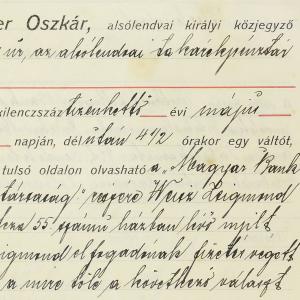 er Oszkár, alsólendvai királyi közjegyző
úr, az alsólendvai takarékpénztár
kilenczszáz tizenkettő évi május
napján, délután 4 1/2 órakor egy váltót,
tulsó oldalon olvasható a „Magyar Bank
társaság" részére Weisz Zsigmond
55 számú házban lévő nyílt
Zsigmond elfogadónak fizetés végett
a mire tőle a következő választ